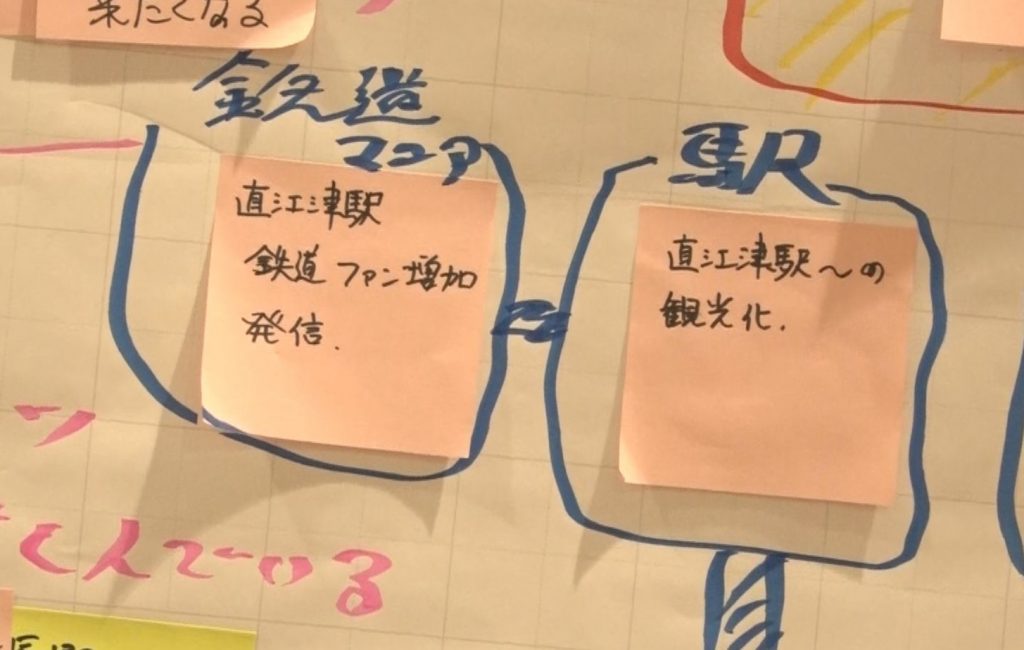 来たくなる
鉄道
マニア
駅
直江津駅
鉄道ファン増加
発信.
直江津駅への
観光化.
でいる